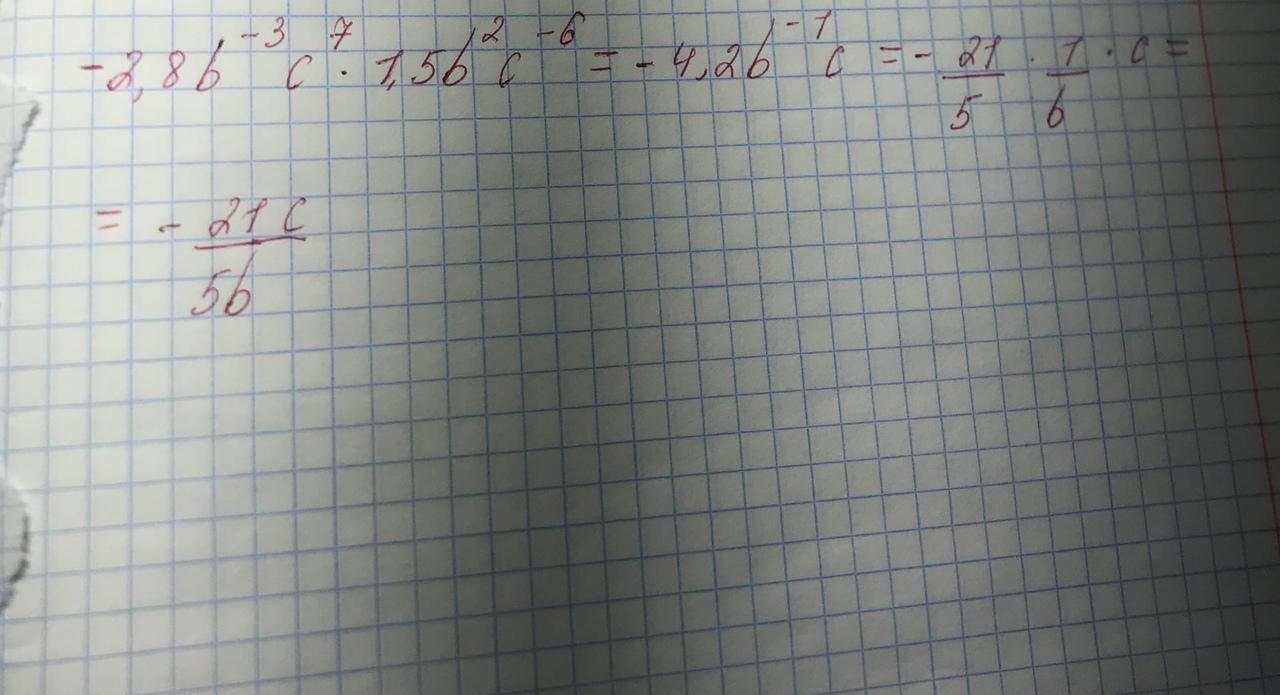 -2,8b⁻³c⁷ · 1,5b²c⁻⁶ = -4,2b⁻¹c = - 21/5 · 1/b · c =
= - 21c/5b